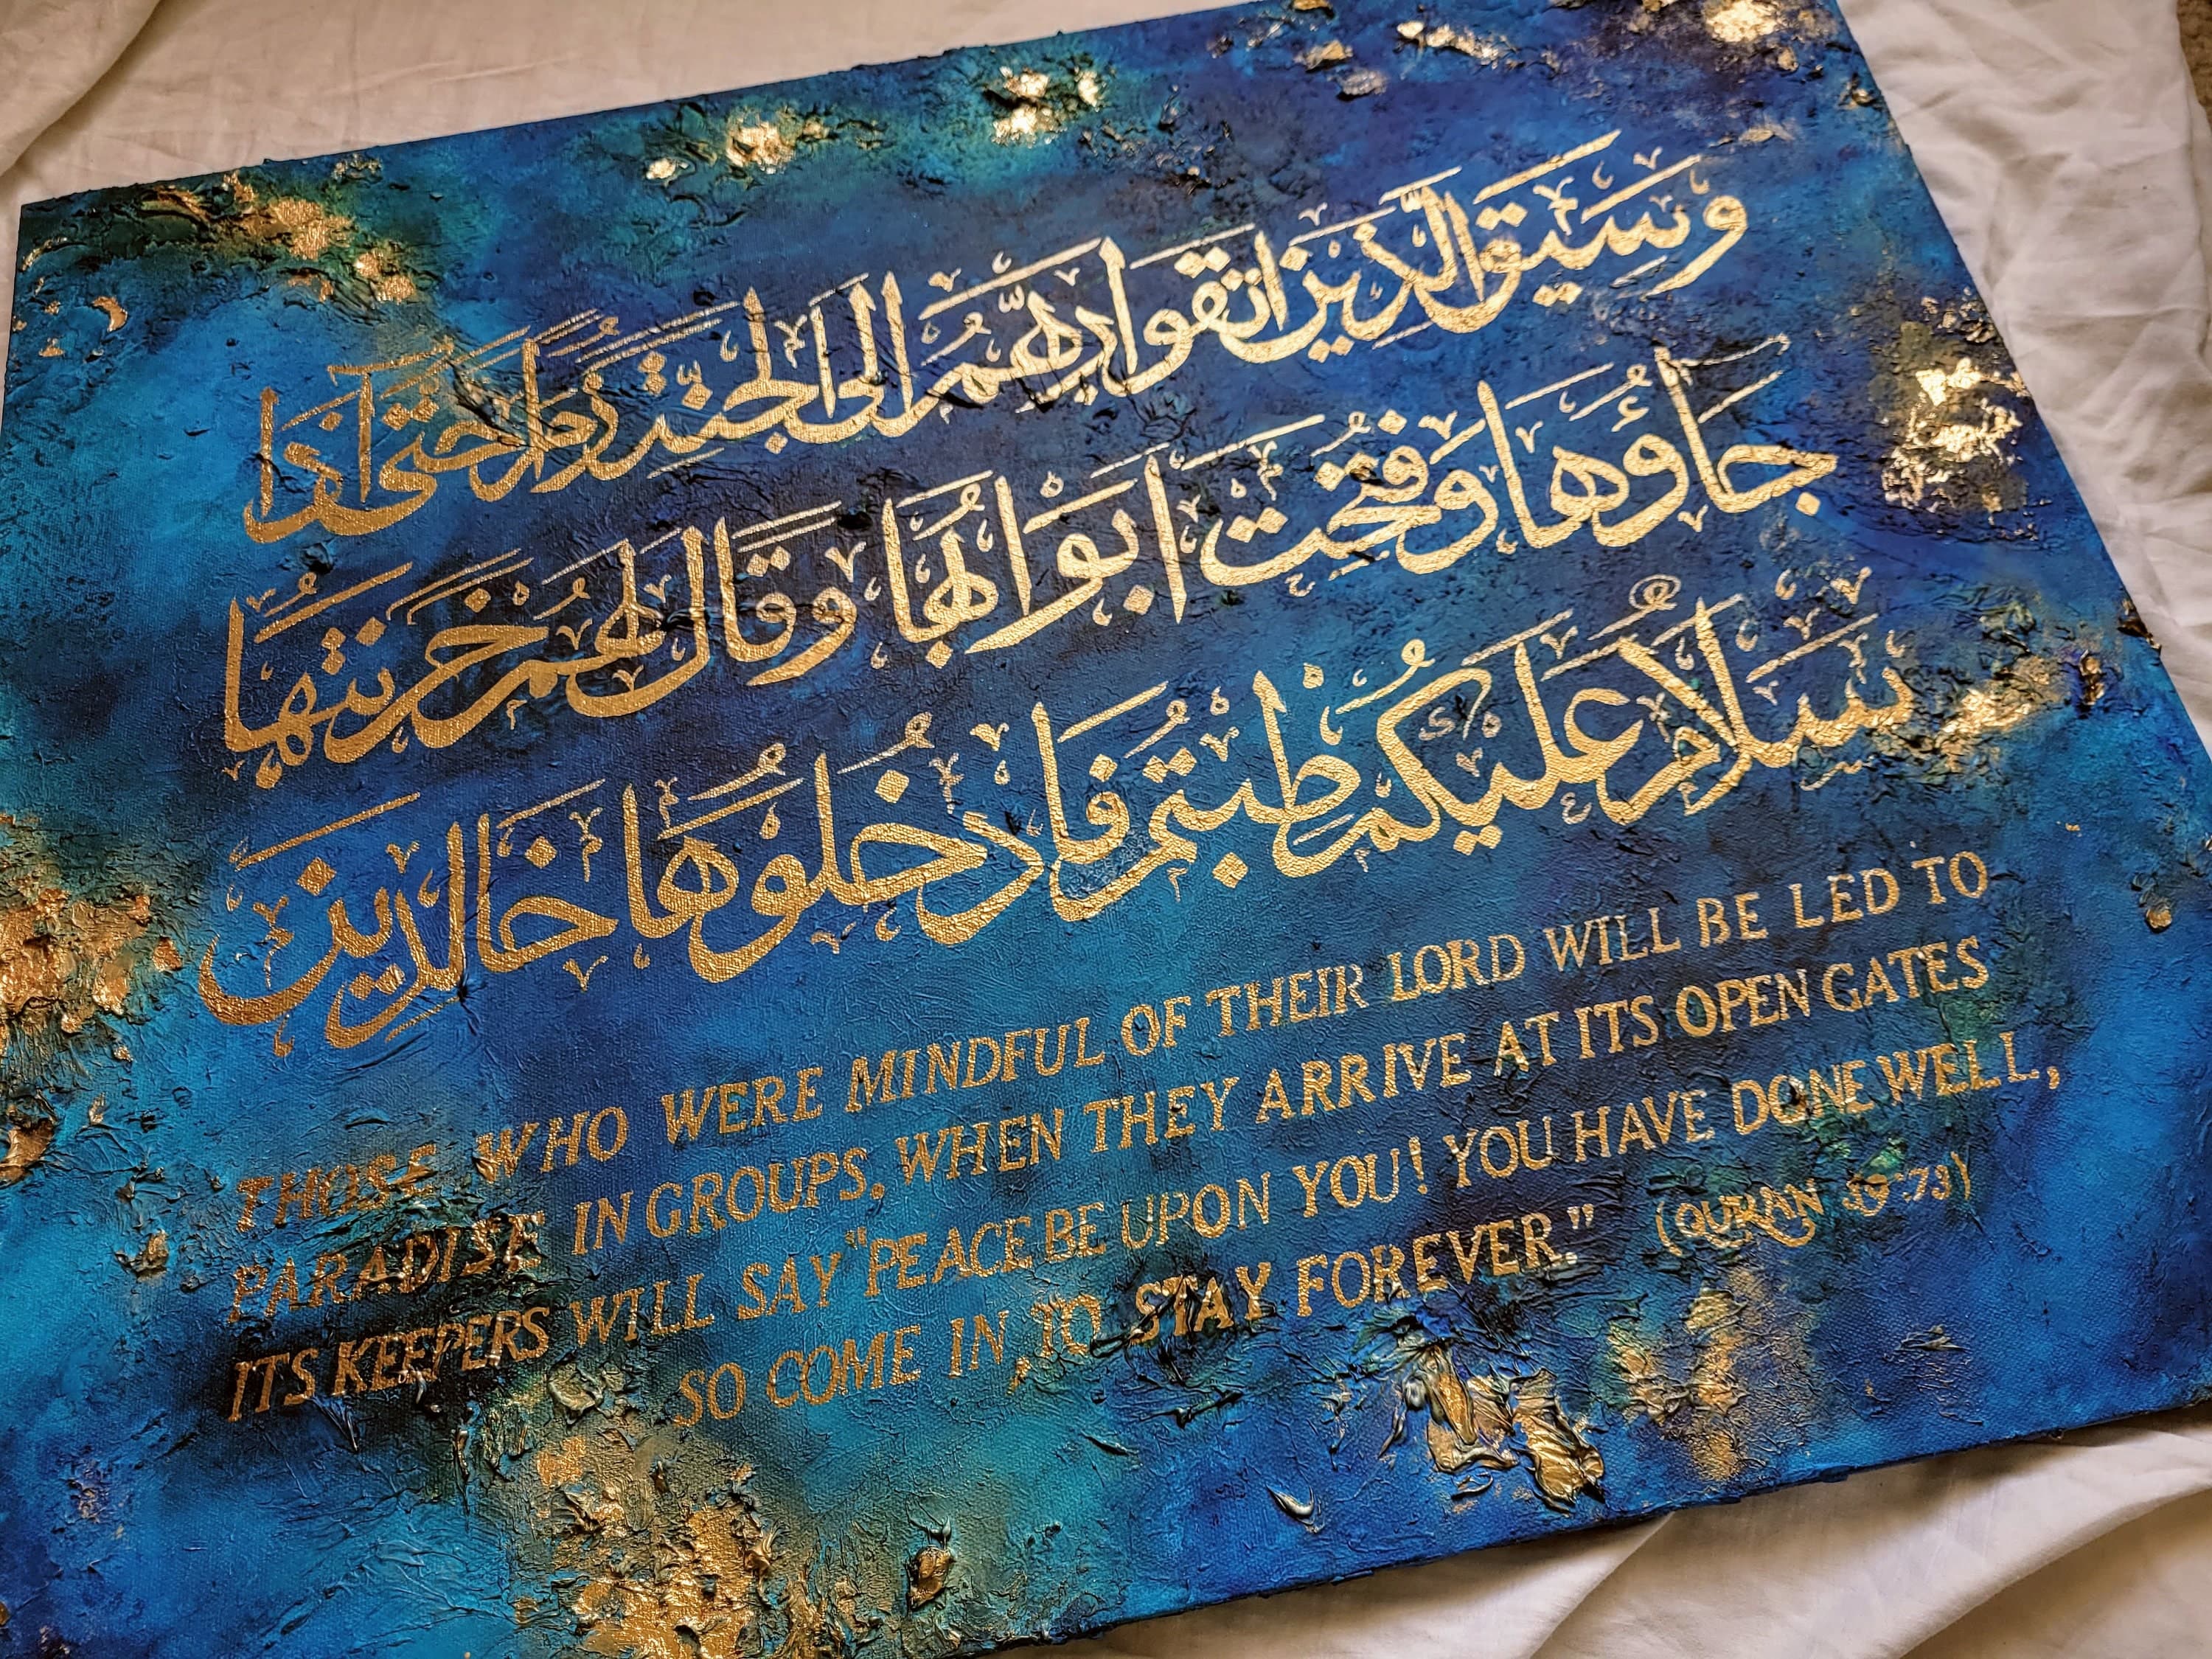 وَسِيقَ الَّذِينَ اتَّقَوْا رَبَّهُمْ إِلَى الْجَنَّةِ زُمَرًا حَتَّى إِذَا
جَاؤُهَا وَفُتِحَتْ أَبْوَابُهَا وَقَالَ لَهُمْ خَزَنَتُهَا
سَلَامٌ عَلَيْكُمْ طِبْتُمْ فَادْخُلُوهَا خَالِدِينَ
THOSE WHO WERE MINDFUL OF THEIR LORD WILL BE LED TO
PARADISE IN GROUPS. WHEN THEY ARRIVE AT ITS OPEN GATES
ITS KEEPERS WILL SAY "PEACE BE UPON YOU! YOU HAVE DONE WELL,
SO COME IN, TO STAY FOREVER." (QUR'AN 39:73)